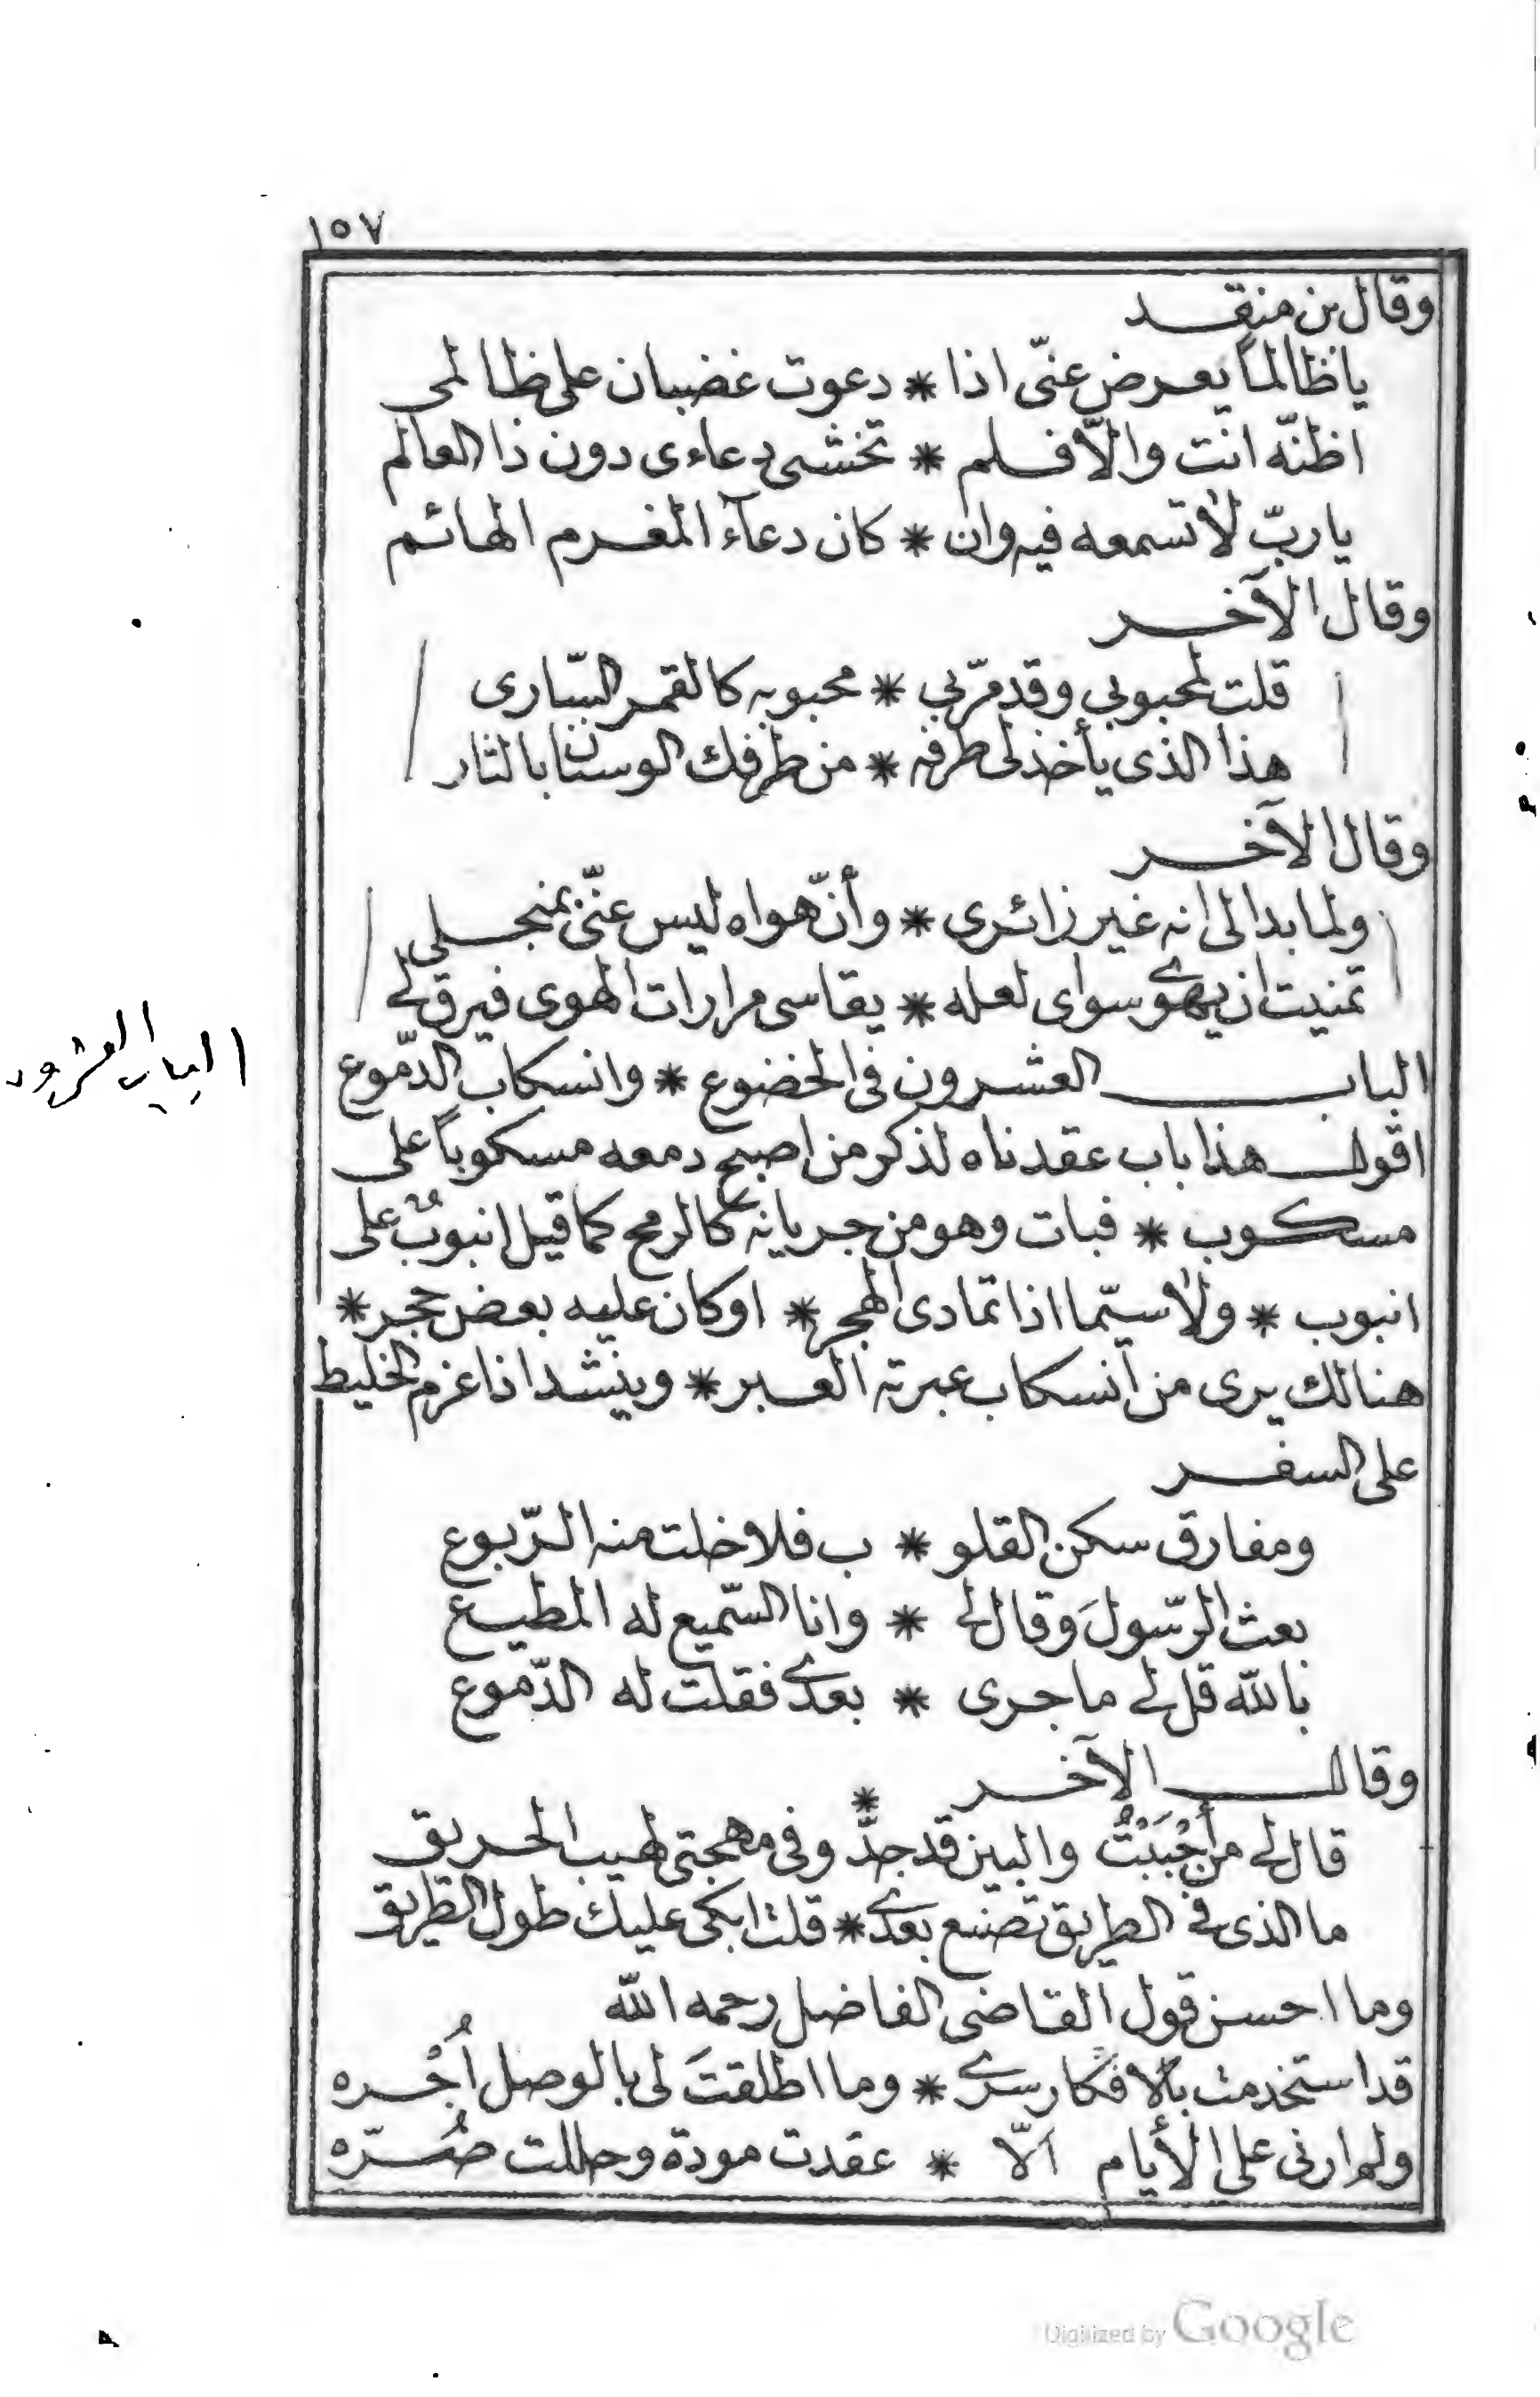 ١٥٧
وقال بن منقد
يا ظالماً يعرض عنّى اذا * دعوت غضبان على ظالمى
اظنّه انت والّا فلم * تخشى دعاءى دون ذا العالم
يا ربّ لا تسمعه فيه وان * كان دعآء المغرم الهائم
وقال الآخر
قلت لمحبوبى وقد مرّ بى * محبوبه كالقمر السّارى
هذا الذى يأخذ لى طرفه * من طرفك الوسنان بالثار
وقال الآخر
ولما بدا لى انه غير زائرى * وأنّ هواه ليس عنّى بمنجلى
تمنيت ان يهوى سواى لعله * يقاسى مرارات الهوى فيرق لى
الباب العشرون فى الخضوع * وانسكاب الدّموع
الباب العشرون
اقول هذا باب عقدناه لذكر من اصبح دمعه مسكوباً على
مسكوب * فبات وهو من جريانه كالرمح كما قيل انبوبٌ على
انبوب * ولا سيّما اذا تمادى الهجر * او كان عليه بعض حجر *
هنالك يرى من انسكاب عبرته العبر * وينشد اذا عزم الخليط
على السفر
ومفارق سكن القلو * ب فلا خلت منه الرّبوع
بعث الرّسولَ وقال لى * وانا السّميع له المطيع
بالله قل لى ما جرى * بعدى فقلت له الدّموع
وقال الآخر
قال لى من أحْبَبْتُ والبين قد جدّ * وفى مهجتى لهيب الحريق
ما الذى فى الطريق تصنع بعدى * قلت ابكى عليك طول الطّريق
وما احسن قول القاضى الفاضل رحمه الله
قد استخدمت بالافكار سرى * وما اطلقتَ لى بالوصل اُجْره
ولم ارنى على الأيام الّا * عقدت مودة وحللت صُرّه
Digitized by Google